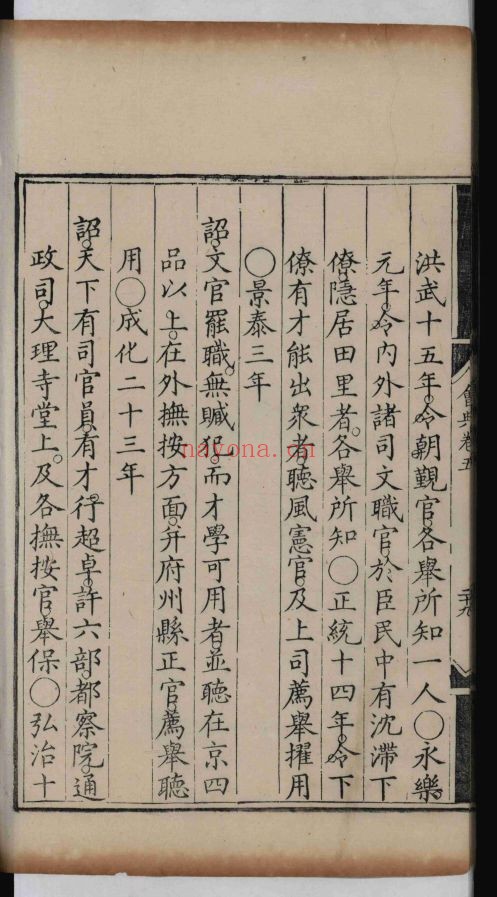 會典卷五
洪武十五年。令朝覲官各舉所知一人〇永樂
元年。令內外諸司文職官於臣民中有沈滯下
僚。隱居田里者。各舉所知〇正統十四年。令下
僚有才能出衆者。聽風憲官。及上司薦舉擢用
〇景泰三年
詔。文官罷職。無贓犯。而才學可用者。並聽在京四
品以上。在外撫按方面。并府州縣正官。薦舉聽
用〇成化二十三年
詔。天下有司官員。有才行超卓。許六部。都察院。通
政司。大理寺堂上。及各撫按官。舉保〇弘治十
nayona.cn